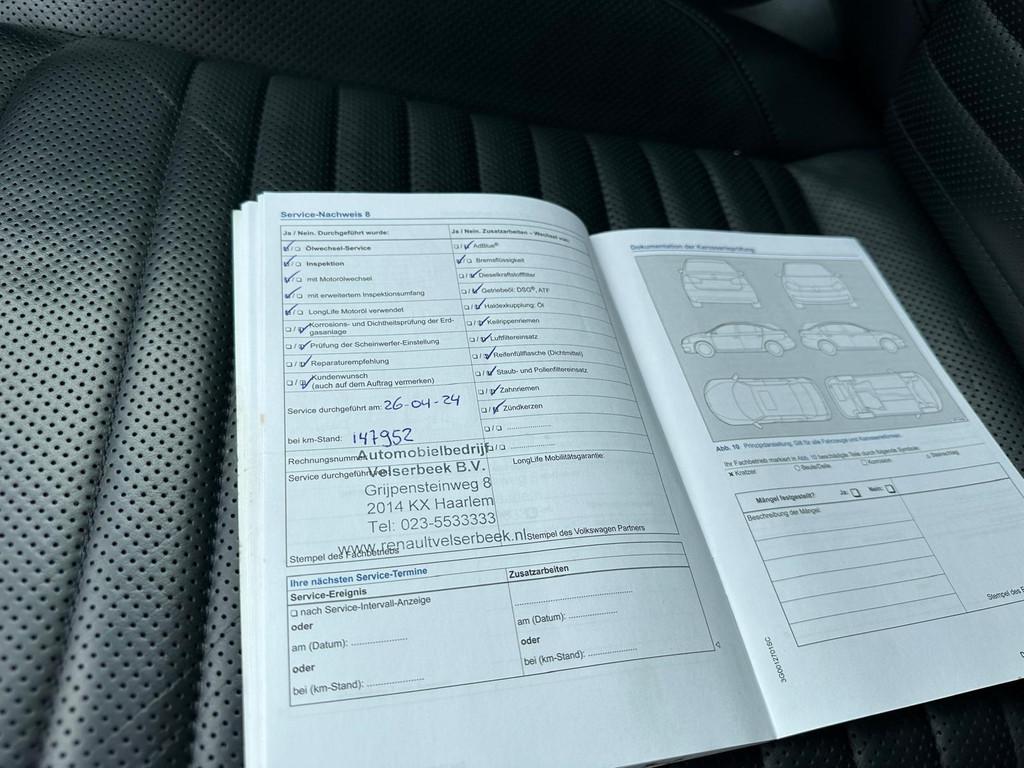 Service-Nachweis 8
Ja / Nein. Durchgeführt wurde:
Ölwechsel-Service
Inspektion
mit Motorölwechsel
mit erweitertem Inspektionsumfang
LongLife Motoröl verwendet
Korrosions- und Dichtheitsprüfung der Erd-
gasanlage
Prüfung der Scheinwerfer-Einstellung
Reparaturempfehlung
Kundenwunsch
(auch auf dem Auftrag vermerken)
Service durchgeführt am: 26-04-24
bei km-Stand: 147952
Rechnungsnumm
Service durchgeführt
Automobielbedrijf
Velserbeek B.V.
Grijpensteinweg 8
2014 KX Haarlem
Tel: 023-5533333
www.renaultvelserbeek.nl
Stempel des Fachbetriebs
Ja / Nein. Zusatzarbeiten – Wechsel von:
AdBlue®
Bremsflüssigkeit
Dieselkraftstofffilter
Getriebeöl: DSG®, ATF
Haldexkupplung: Öl
Keilrippenriemen
Luftfiltereinsatz
Reifenfüllflasche (Dichtmittel)
Staub- und Pollenfiltereinsatz
Zahnriemen
Zündkerzen
LongLife Mobilitätsgarantie:
Stempel des Volkswagen Partners
Ihre nächsten Service-Termine
Service-Ereignis
nach Service-Intervall-Anzeige
oder
am (Datum):
oder
bei (km-Stand):
Zusatzarbeiten
am (Datum):
oder
bei (km-Stand):
Dokumentation der Karosserieprüfung:
Abb. 10 Prinzipdarstellung: Gilt für alle Fahrzeuge und Karosserieformen.
Ihr Fachbetrieb markiert in Abb. 10 beschädigte Teile durch folgende Symbole:
× Kratzer
Beule/Delle
Korrosion
Steinschlag
Mängel festgestellt? Ja: Nein:
Beschreibung der Mängel:
Stempel des
3G0012701SC